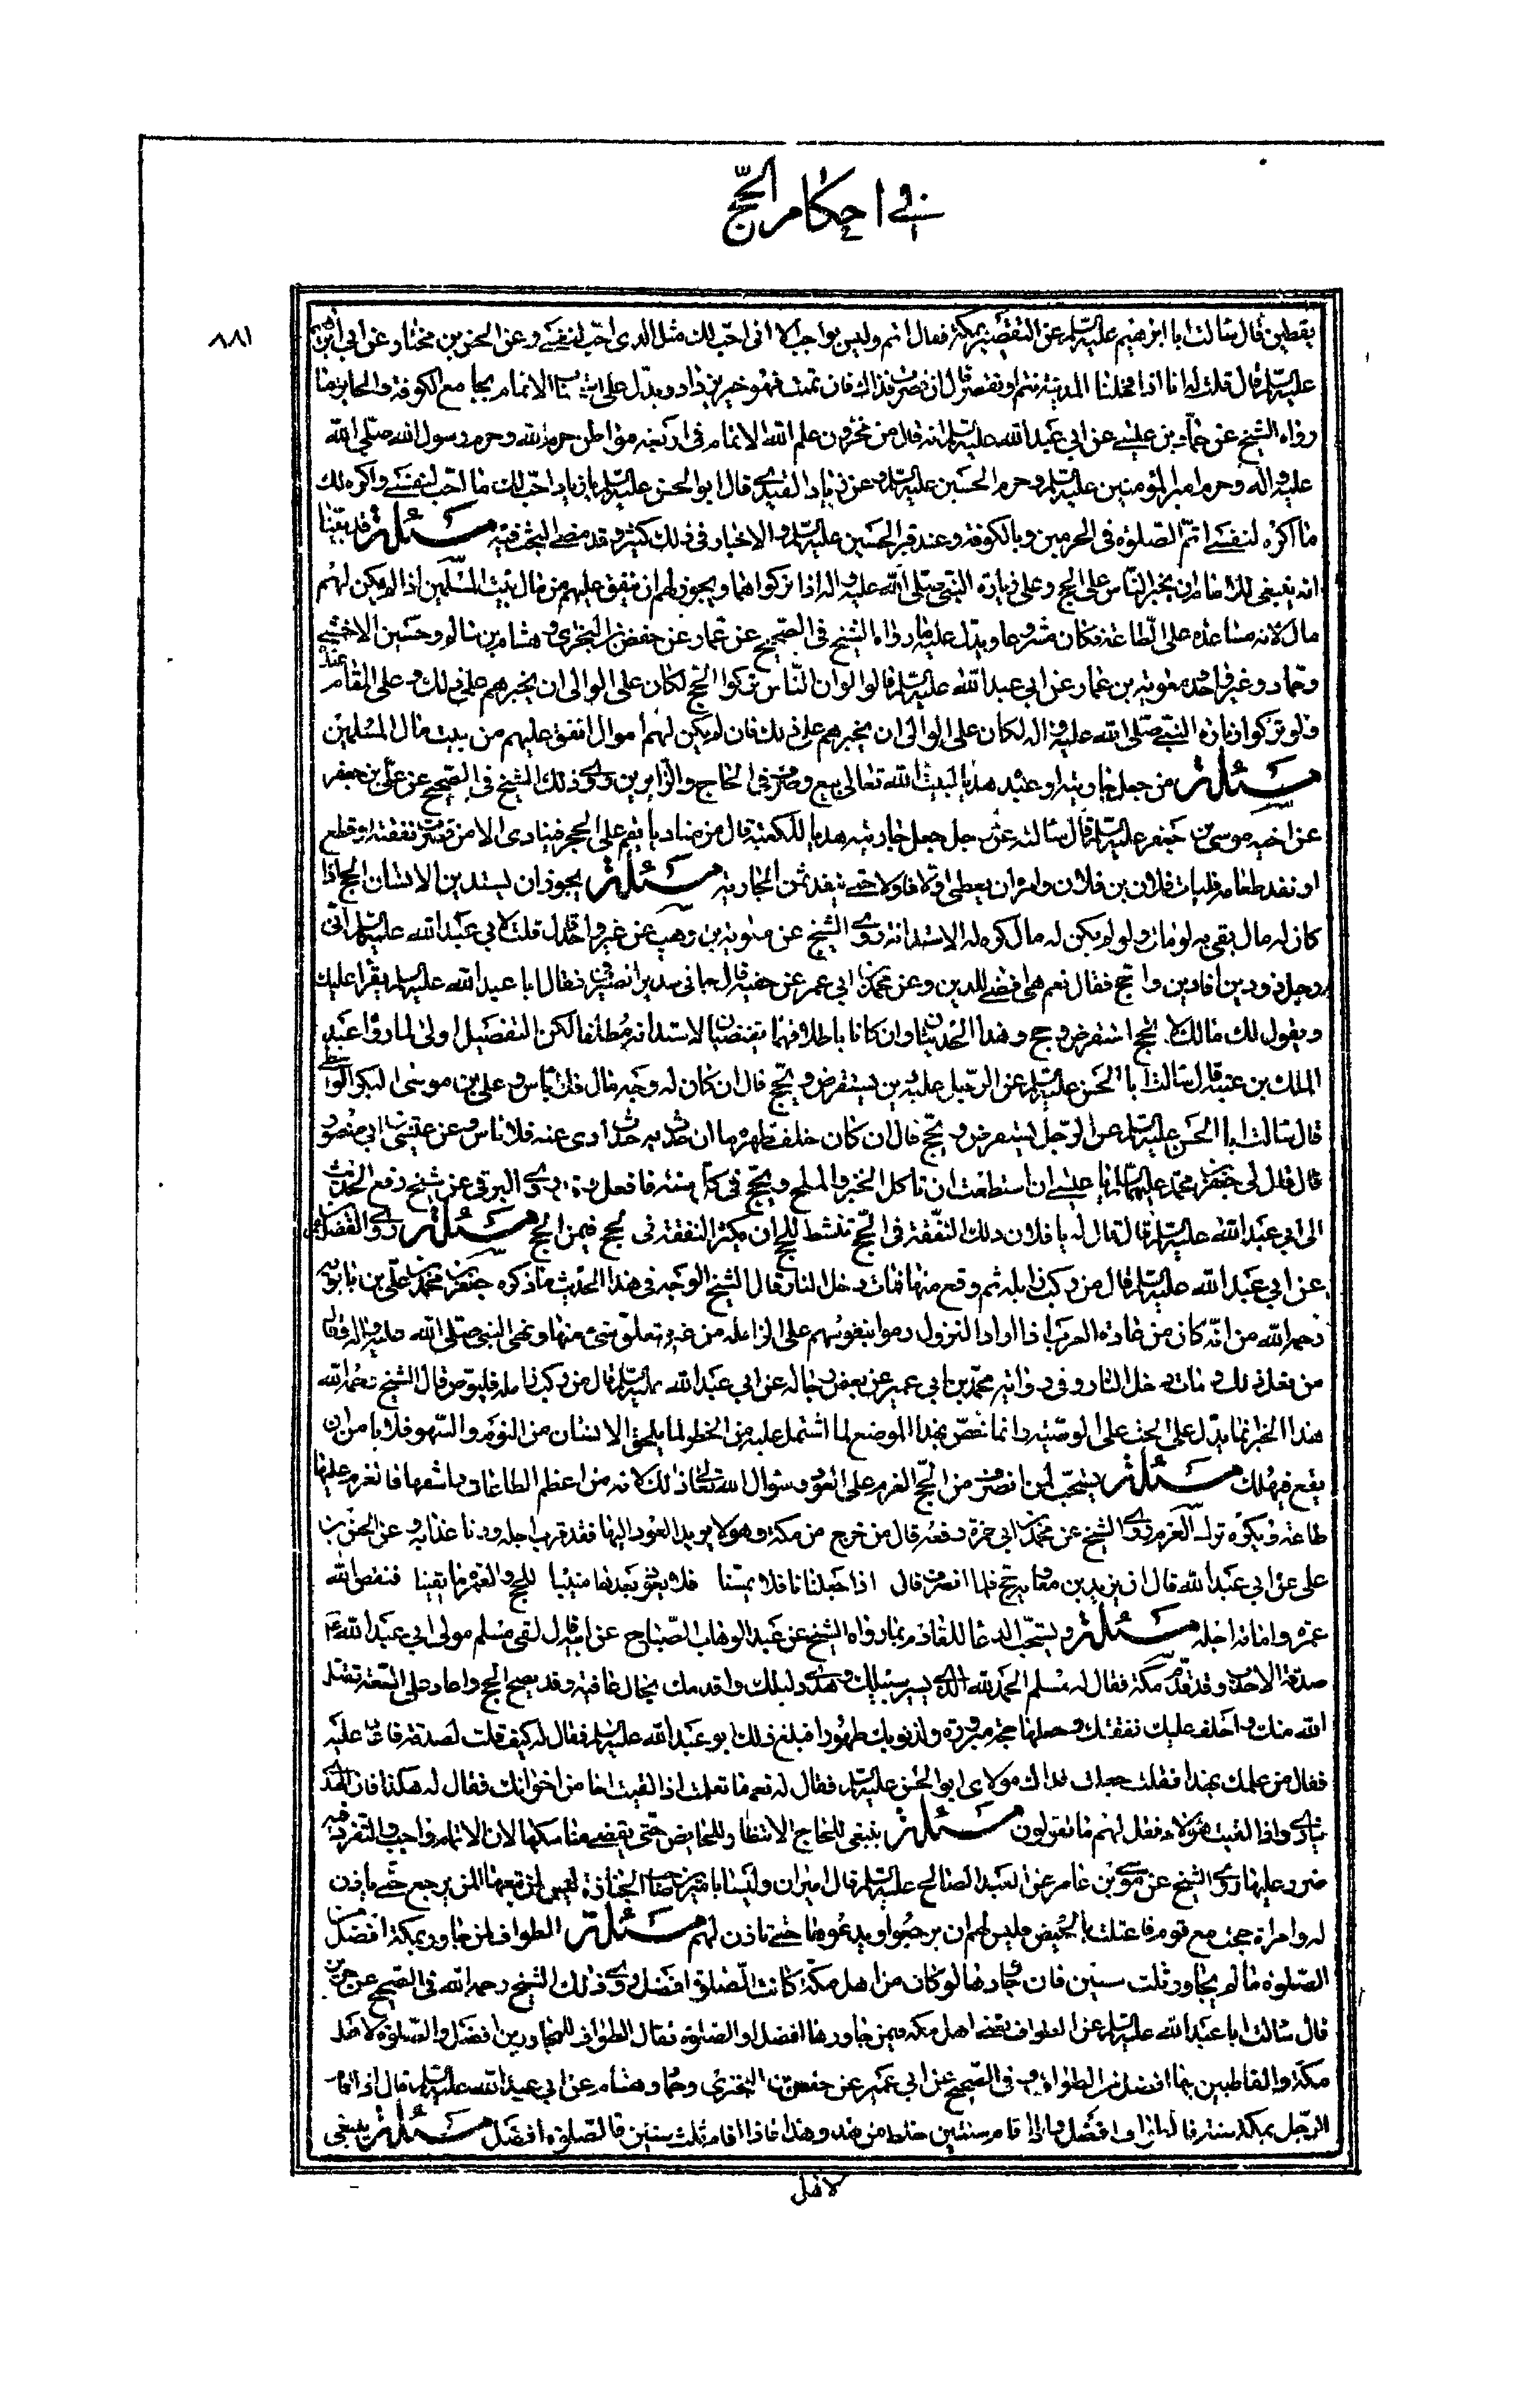 في احكام الحجّ
٨٨١
يقطين قال سالت ابا ابرهيم عليه السلم عن التقصير بمكة فقال اتم وليس بواجب الا انى احب لك مثل الذى احب لنفسى وعن الحسن بن مختار عن ابى ابرهيم
عليه السلم قال قلت له انا اذا دخلنا المدينة نتم او نقصر قال ان قصرت فذاك فان تممت فهو خير يزداد ويدل على الاتمام بجامع الكوفة والحاير ما
رواه الشيخ عن حماد بن عيسى عن ابى عبد الله عليه السلم انه قال من مخزون علم الله الاتمام فى اربعة مواطن حرم الله وحرم رسول الله صلى الله
عليه واله وحرم امير المؤمنين عليه السلم وحرم الحسين عليه السلم وعن زياد القندى قال ابو الحسن عليه السلم يا زياد احب لك ما احب لنفسى واكره لك
ما اكره لنفسى اتم الصلوة فى الحرمين وبالكوفة وعند قبر الحسين عليه السلم والاخبار فى ذلك كثيرة وقد مضى البحث فيه مسئلة قد بينا
انه ينبغى للامام ان يجبر الناس على الحج وعلى زيارة النبى صلى الله عليه واله اذا تركواهما ويجوز لهم ان ينفق عليهم من مال بيت المسلمين اذا لم يكن لهم
مال لانه مساعدة على الطاعة فكان مشروعا ويدل عليه ما رواه الشيخ فى الصحيح عن عمار عن حفص بن البخترى وهشام بن سالم وحسين الاحمسى
وحماد وغير واحد ومعوية بن عمار عن ابى عبد الله عليه السلم قالوا لو ان الناس تركوا الحج لكان على الوالى ان يجبرهم على ذلك وعلى المقام عنده
ولو تركوا زيارة النبى صلى الله عليه واله لكان على الوالى ان يجبرهم على ذلك فان لم يكن لهم اموال انفق عليهم من بيت مال المسلمين
مسئلة من جعل جاريته او عبده هديا لبيت الله تعالى بيع وصرف فى الحاج والزايرين روى ذلك الشيخ فى الصحيح عن على بن جعفر
عن اخيه موسى بن جعفر عليه السلم قال سالته عن رجل جعل جاريته هديا للكعبة قال مر مناديا يقم على الحجر فينادى الا من قصرت نفقته او قطع
او نفد طعامه فليات فلان بن فلان وامره ان يعطى اولا فاولا حتى ينفد ثمن الجارية مسئلة يجوز ان يستدين الانسان الحج اذا
كان له مال يفى به لو مات ولو لم يكن له مال كره له الاستدانة روى الشيخ عن معوية بن وهب عن غير واحد قال قلت لابى عبد الله عليه السلم انى
رجل ذو دين افادين واحج فقال نعم هى اقضى للدين وعن محمد بن ابى عمير عن حقبة قال جاءنى سدير الصيرفى فقال ابا عبد الله عليه السلم يقرا عليك
ويقول لك مالك لا تحج استقرض وحج وهذا الحديثان وان كانا باطلاقهما يقتضيان الاستدانة مطلقا لكن التفصيل اولى لما رواه عبد
الملك بن عتبة قال سالت ابا الحسن عليه السلم عن الرجل عليه دين يستقرض ويحج قال ان كان له وجه مال فلا باس وعلى بن موسى البكر الواسطى
قال سالت ابا الحسن عليه السلم عن الرجل يستقرض ويحج قال ان كان خلف ظهره ما ان حدث به حدث ادى عنه فلا باس وعن عيسى بن ابى منصور
قال قال لى جعفر بن محمد عليهما السلم يا عيسى ان استطعت ان تاكل الخبز والملح وتحج فى كل سنة فافعل وروى البرقى عن شيخ رفع الحديث
الى ابى عبد الله عليه السلم قال قال له يا فلان اقلل النفقة فى الحج تنشط للحج ولا تكثر النفقة فى الحج فتمل الحج مسئلة روى الفضل بن
عن ابى عبد الله عليه السلم قال من ركب زاملة ثم وقع منها فمات دخل النار قال الشيخ الوجه فى هذا الحديث ما ذكره جعفر بن محمد بن على بن بابويه
رحمه الله من انه كان من عادة العرب اذا ارادوا النزول رموا بنفوسهم على الزاملة من غير تعلق بشئ منها ونهى النبى صلى الله عليه واله وقال
من فعل ذلك ومات دخل النار وفى رواية محمد بن ابى عمير عن بعض رجاله عن ابى عبد الله عليه السلم قال من ركب زاملة فليوص قال الشيخ رحمه الله
هذا الخبر انما يدل على الحث على الوصية وانما خص بهذا الموضع لما اشتمل عليه من الخطر لما يلحق الانسان من النوم والسهو فلا يامن ان
يقع فيهلك مسئلة يستحب لمن انصرف من الحج العزم على العود وسؤال الله تعالى ذلك لانه من اعظم الطاعات واشقها فالعزم عليها
طاعة ويكره ترك العزم روى الشيخ عن محمد بن ابى حمزة رفعه قال من خرج من مكة وهو لا يريد العود اليها فقد قرب اجله ودنا عذابه وعن الحسن بن
على عن ابى عبد الله قال ان يزيد بن معوية حج فلما انصرف قال اذا جعلنا ثافلا يمينا فلا نعود بعدها سنينا للحج والعمرة ما بقينا فنقص الله
عمره واماته اجله مسئلة ويستحب الدعا للقادم بما رواه الشيخ عن عبد الوهاب الصباح عن ابيه قال لقى مسلم مولى ابى عبد الله ع
صدقة الاحدب وقد قدم من مكة فقال له مسلم الحمد لله الذى يسر سبيلك وهدى دليلك واقدمك بحال عافية وقد يصيح الحج واعاد على السعة فتقبل
الله منك واخلف عليك نفقتك وجعلها حجة مبرورة ولذنوبك طهورا فبلغ ذلك ابو عبد الله عليه السلم فقال له كيف قلت لصدقة فاعاد عليه
فقال من علمك بهذا فقلت جعلت فداك مولاى ابو الحسن عليه السلم فقال له نعم ما تعلمت اذا لقيت اخا من اخوانك فقال له هكذا فان الهدى
بنا هدى واذا لقيت هؤلاء فقل لهم ما يقولون مسئلة ينبغى للحاج الانتظار للحايض حتى يقضى مناسكها لان الاتمام واجب والتفرقة فيه
ضرر عليها روى الشيخ عن موسى بن عامر عن العبد الصالح عليه السلم قال اميران وليسا باميرين صاحب الجنازة ليس لمن يتبعها ان يرجع حتى ياذن
له وامراة حجت مع قوم فاعتلت بالحيض فليس لهم ان يرجعوا ويدعوها حتى تاذن لهم مسئلة الطواف لمن جاور بمكة افضل من
الصلوة ما لم يجاور ثلث سنين فان جاورها او كان من اهل مكة كانت الصلوة افضل روى ذلك الشيخ رحمه الله فى الصحيح عن حريز
قال سالت ابا عبد الله عليه السلم عن الطواف يعنى اهل مكة ممن جاور بها افضل او الصلوة فقال الطواف للمجاورين افضل والصلوة لاهل
مكة والقاطنين بها افضل من الطواف وفى الصحيح عن ابى عمير عن حفص بن البخترى وحماد وهشام عن ابى عبد الله عليه السلم قال اذا اقام
الرجل بمكة سنة فالطواف افضل واذا اقام سنتين خلط من هذا وهذا فاذا اقام ثلث سنين فالصلوة افضل مسئلة ينبغى
لاهل